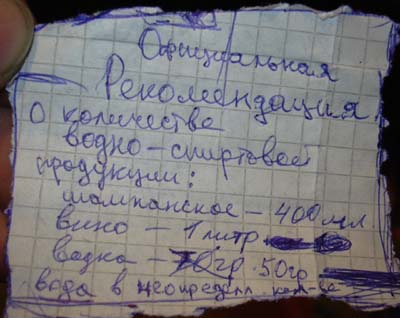 Официальная
Рекомендация
О количестве
водно-спиртовой
продукции:
шампанское - 400 мл
вино - 1 литр
водка - 50гр
вода в неопредел. кол-ве